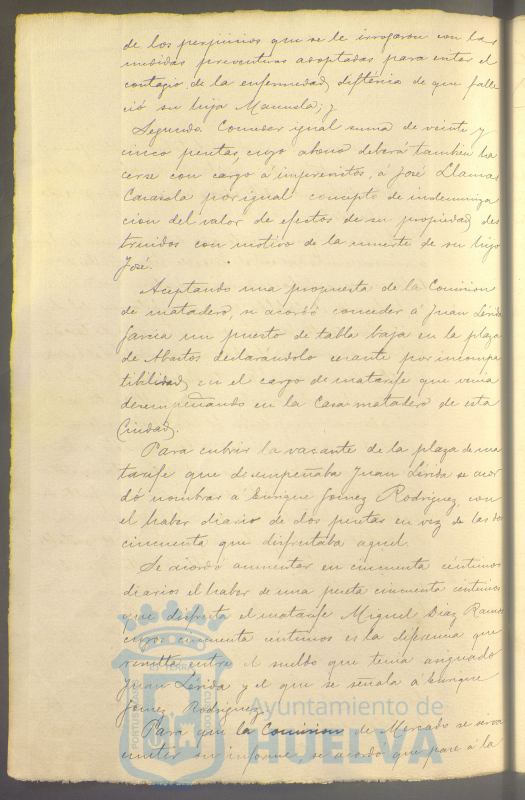 de los perjuicios que se le irrogaron con las
medidas preventivas adoptadas para evitar el
contagio de la enfermedad diftérica de que falle
ció su hija Manuela; y
Segundo. Conceder igual suma de veinte y
cinco pesetas, cuyo abono deberá tambien ha
cerse con cargo á imprevistos, á José Llamas
Carasola por igual concepto de indemniza
cion del valor de efectos de su propiedad des
truidos con motivo de la muerte de su hijo
José.
Aceptando una propuesta de la Comision
de matadero, se acordó conceder á Juan Lérida
García un puesto de tabla baja en la plaza
de Abastos declarandolo cesante por incompa
tibilidad en el cargo de matarife que venia
desempeñando en la Casa matadero de esta
Ciudad.
Para cubrir la vacante de la plaza de ma
tarife que desempeñaba Juan Lérida se acor
dó nombrar á Enrique Gomez Rodriguez, con
el haber diario de dos pesetas en vez de las dos
cincuenta que disfrutaba aquel.
Se acordó aumentar en cincuenta céntimos
diarios el haber de una peseta cincuenta centimos
que disfruta el matarife Miguel Diaz Ramos
cuyos cincuenta centimos es la diferencia que
resulta entre el sueldo que tenia asignado
Juan Lérida y el que se señala á Enrique
Gomez Rodriguez.
Para que la Comision de Mercado se sirva
emitir su informe, se acordó que pase á la
Ayuntamiento de
HUELVA